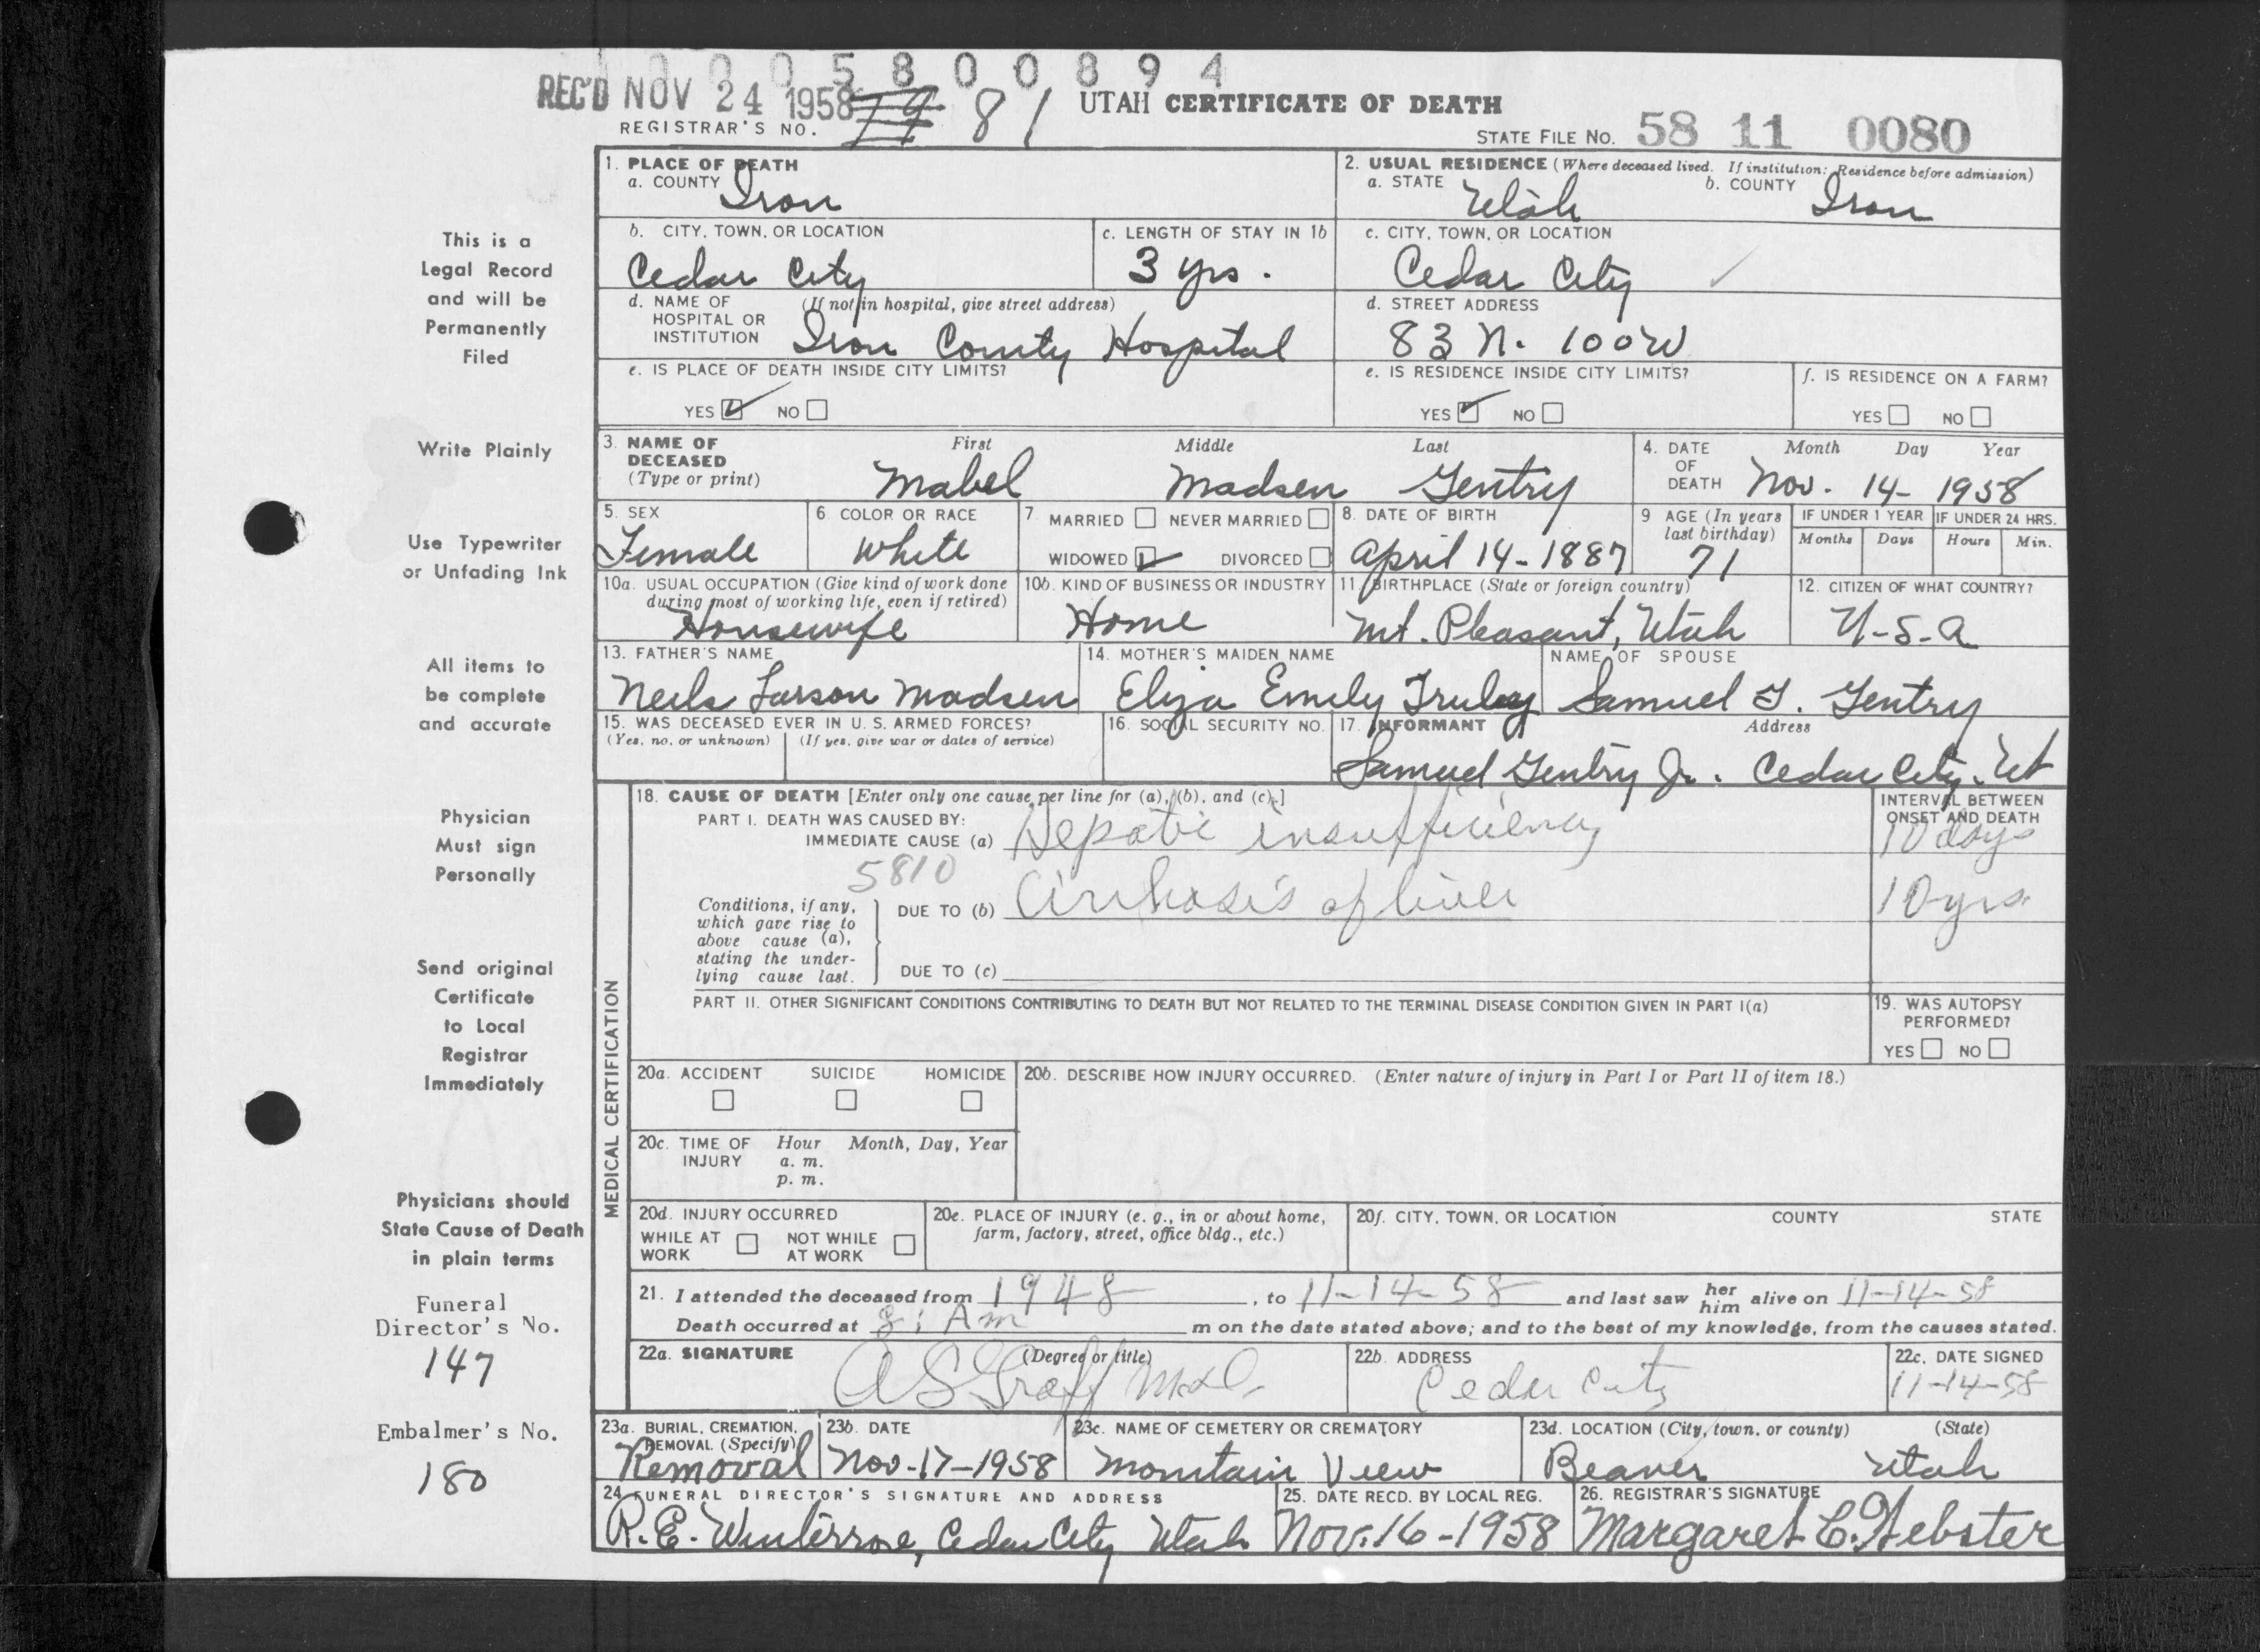 0 0 5 8 0 0 8 9 4
REC'D NOV 24 1958
REGISTRAR'S NO. 79 81
UTAH CERTIFICATE OF DEATH
STATE FILE No. 58 11 0080
This is a
Legal Record
and will be
Permanently
Filed
Write Plainly
Use Typewriter
or Unfading Ink
All items to
be complete
and accurate
Physician
Must sign
Personally
Send original
Certificate
to Local
Registrar
Immediately
Physicians should
State Cause of Death
in plain terms
Funeral
Director's No.
147
Embalmer's No.
180
1. PLACE OF DEATH
a. COUNTY Iron
2. USUAL RESIDENCE (Where deceased lived. If institution: Residence before admission)
a. STATE Utah b. COUNTY Iron
b. CITY, TOWN, OR LOCATION
Cedar City
c. LENGTH OF STAY IN 1b
3 yrs.
c. CITY, TOWN, OR LOCATION
Cedar City
d. NAME OF (If not in hospital, give street address)
HOSPITAL OR
INSTITUTION Iron County Hospital
d. STREET ADDRESS
83 N. 100 W
e. IS PLACE OF DEATH INSIDE CITY LIMITS?
YES NO
e. IS RESIDENCE INSIDE CITY LIMITS?
YES NO
f. IS RESIDENCE ON A FARM?
YES NO
3. NAME OF First Middle Last
DECEASED
(Type or print) Mabel Madsen Gentry
4. DATE Month Day Year
OF
DEATH Nov. 14- 1958
5. SEX
Female
6. COLOR OR RACE
White
7. MARRIED NEVER MARRIED
WIDOWED DIVORCED
8. DATE OF BIRTH
April 14-1887
9 AGE (In years
last birthday)
71
IF UNDER 1 YEAR
Months Days
IF UNDER 24 HRS.
Hours Min.
10a. USUAL OCCUPATION (Give kind of work done
during most of working life, even if retired)
Housewife
10b. KIND OF BUSINESS OR INDUSTRY
Home
11 BIRTHPLACE (State or foreign country)
Mt. Pleasant, Utah
12. CITIZEN OF WHAT COUNTRY?
U-S-A
13. FATHER'S NAME
Neils Larson Madsen
14. MOTHER'S MAIDEN NAME
Eliza Emily
NAME OF SPOUSE
Samuel T. Gentry
15. WAS DECEASED EVER IN U. S. ARMED FORCES?
(Yes, no, or unknown) (If yes, give war or dates of service)
16. SOCIAL SECURITY NO.
17. INFORMANT Address
Samuel Gentry Jr. Cedar City, Ut
MEDICAL CERTIFICATION
18. CAUSE OF DEATH [Enter only one cause per line for (a), (b), and (c).]
INTERVAL BETWEEN
ONSET AND DEATH
PART I. DEATH WAS CAUSED BY:
IMMEDIATE CAUSE (a) Hepatic insufficiency 10 days
5810
Conditions, if any,
which gave rise to
above cause (a),
stating the under-
lying cause last.
DUE TO (b) Cirrhosis of liver 10 yrs.
DUE TO (c)
PART II. OTHER SIGNIFICANT CONDITIONS CONTRIBUTING TO DEATH BUT NOT RELATED TO THE TERMINAL DISEASE CONDITION GIVEN IN PART I(a)
19. WAS AUTOPSY
PERFORMED?
YES NO
20a. ACCIDENT SUICIDE HOMICIDE
20b. DESCRIBE HOW INJURY OCCURRED. (Enter nature of injury in Part I or Part II of item 18.)
20c. TIME OF Hour Month, Day, Year
INJURY a. m.
p. m.
20d. INJURY OCCURRED
WHILE AT NOT WHILE
WORK AT WORK
20e. PLACE OF INJURY (e. g., in or about home,
farm, factory, street, office bldg., etc.)
20f. CITY, TOWN, OR LOCATION COUNTY STATE
21. I attended the deceased from 1948, to 11-14-58 and last saw her him alive on 11-14-58
Death occurred at 8: Am m on the date stated above; and to the best of my knowledge, from the causes stated.
22a. SIGNATURE (Degree or title)
A S Graff M.D.
22b. ADDRESS
Cedar City
22c. DATE SIGNED
11-14-58
23a. BURIAL, CREMATION,
REMOVAL (Specify)
Removal
23b. DATE
Nov-17-1958
23c. NAME OF CEMETERY OR CREMATORY
Mountain View
23d. LOCATION (City, town, or county) (State)
Beaver Utah
24 FUNERAL DIRECTOR'S SIGNATURE AND ADDRESS
R. E. Winterrose, Cedar City Utah
25. DATE RECD. BY LOCAL REG.
Nov. 16-1958
26. REGISTRAR'S SIGNATURE
Margaret C. Webster